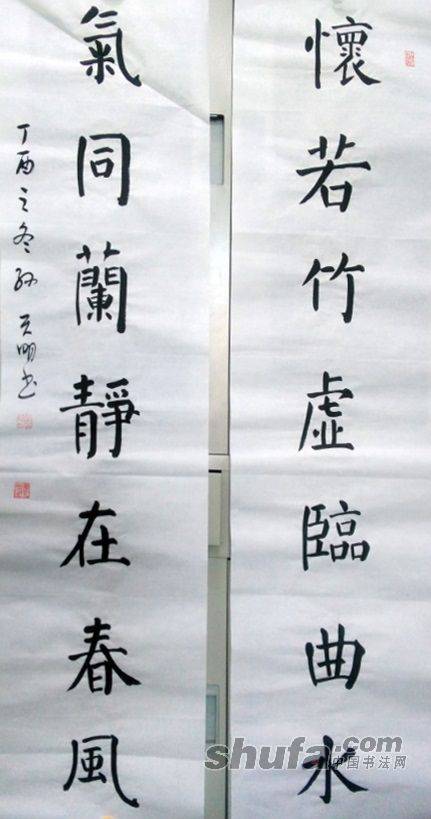 懷若竹虛臨曲水
氣同蘭靜在春風
丁酉之冬孫天明书
shufa.com
中国书法网